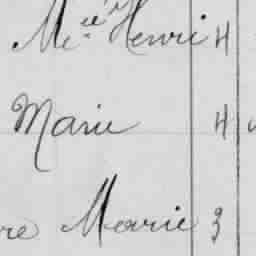 Me Henri 4
Marie 4
re Marie 3